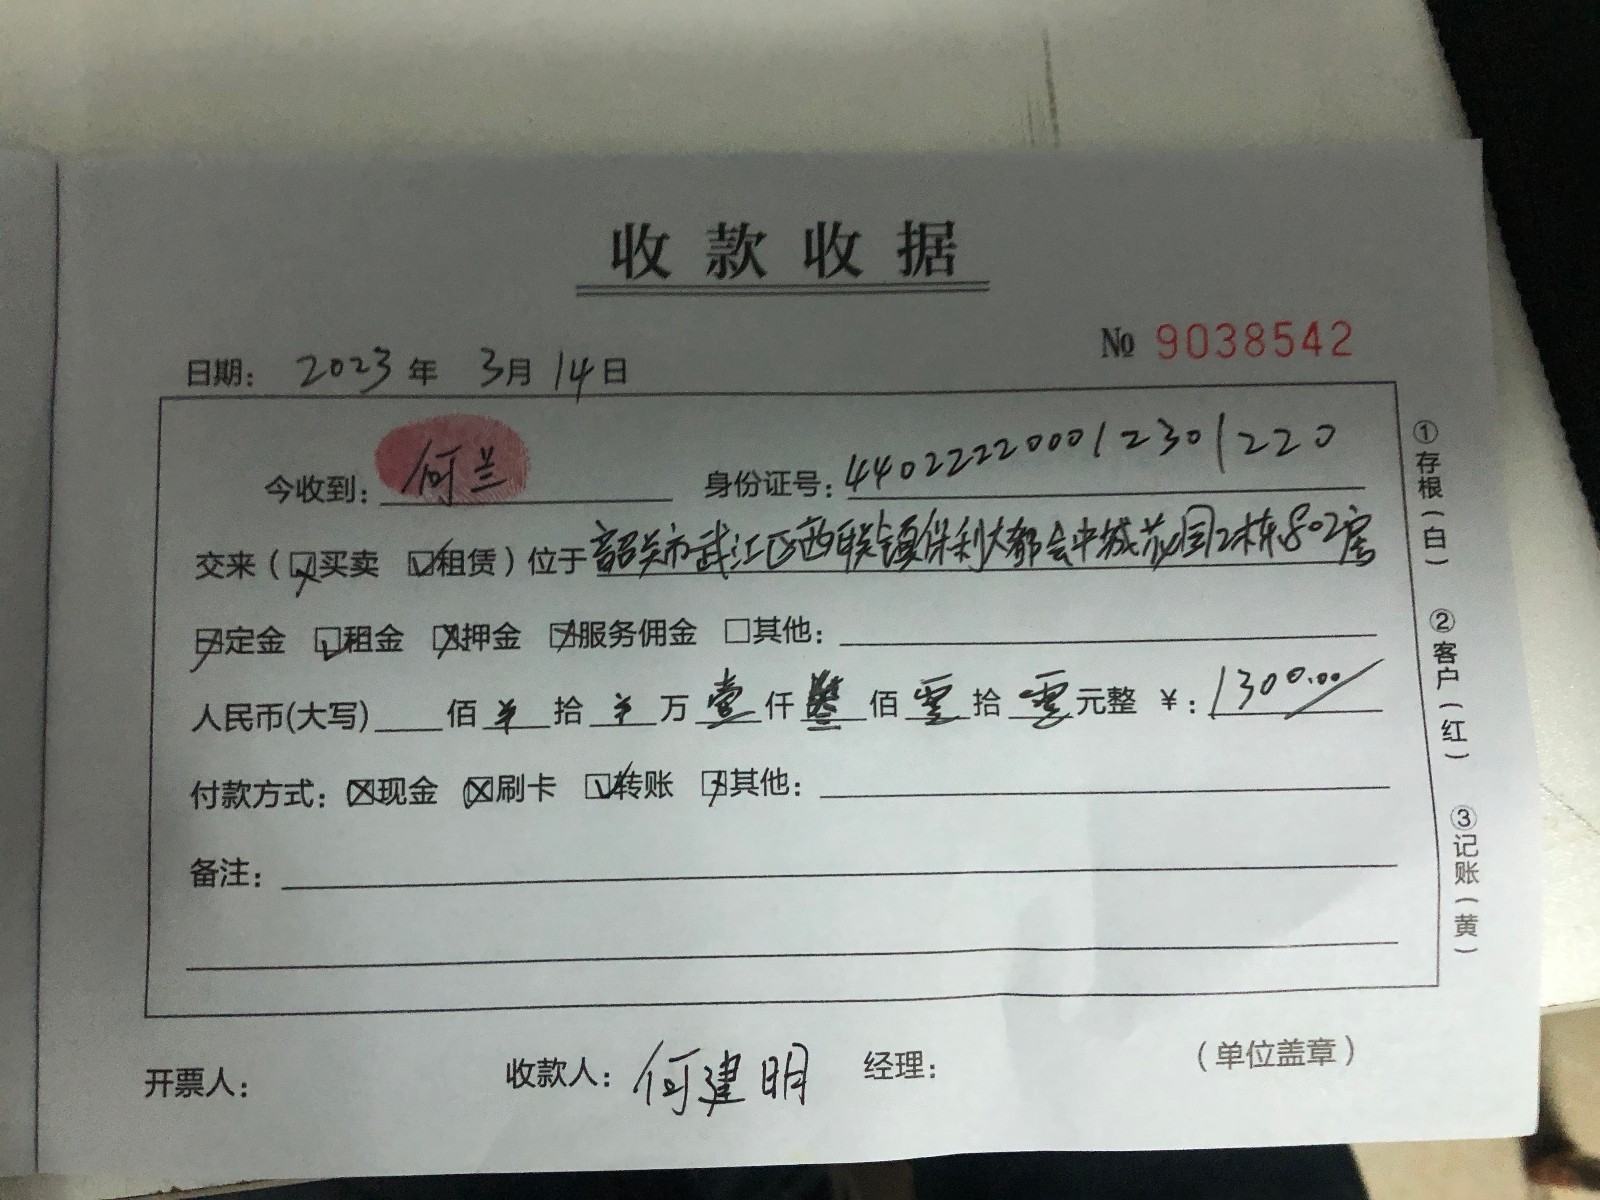 收款收据
№ 9038542
日期： 2023 年 3月 14日
今收到： 何兰 身份证号：440222200012301220
交来（☑买卖 ☑租赁）位于韶关市武江区西联镇保利大都会中城花园2栋802房
☑定金 ☑租金 ☒押金 ☑服务佣金 □其他：
人民币(大写) 佰 拾 万 壹 仟 叁 佰 零 拾 零 元整 ￥：1300.00
付款方式：☒现金 ☒刷卡 ☑转账 ☑其他：
备注：
开票人： 收款人：何建明 经理： （单位盖章）
①存根（白）
②客户（红）
③记账（黄）